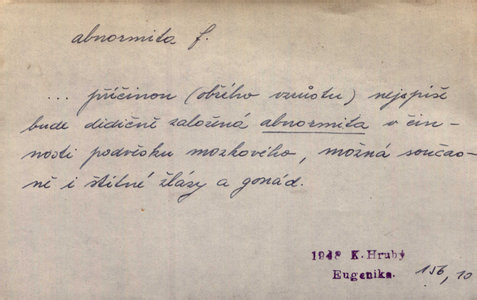 abnormita f.
... příčinou (obřího vzrůstu) nejspíše
bude dědičně založená abnormita v čin-
nosti podvěsku mozkového, možná součas-
ně i štítné žlázy a gonád.
1948 K. Hrubý
Eugenika. 156, 10